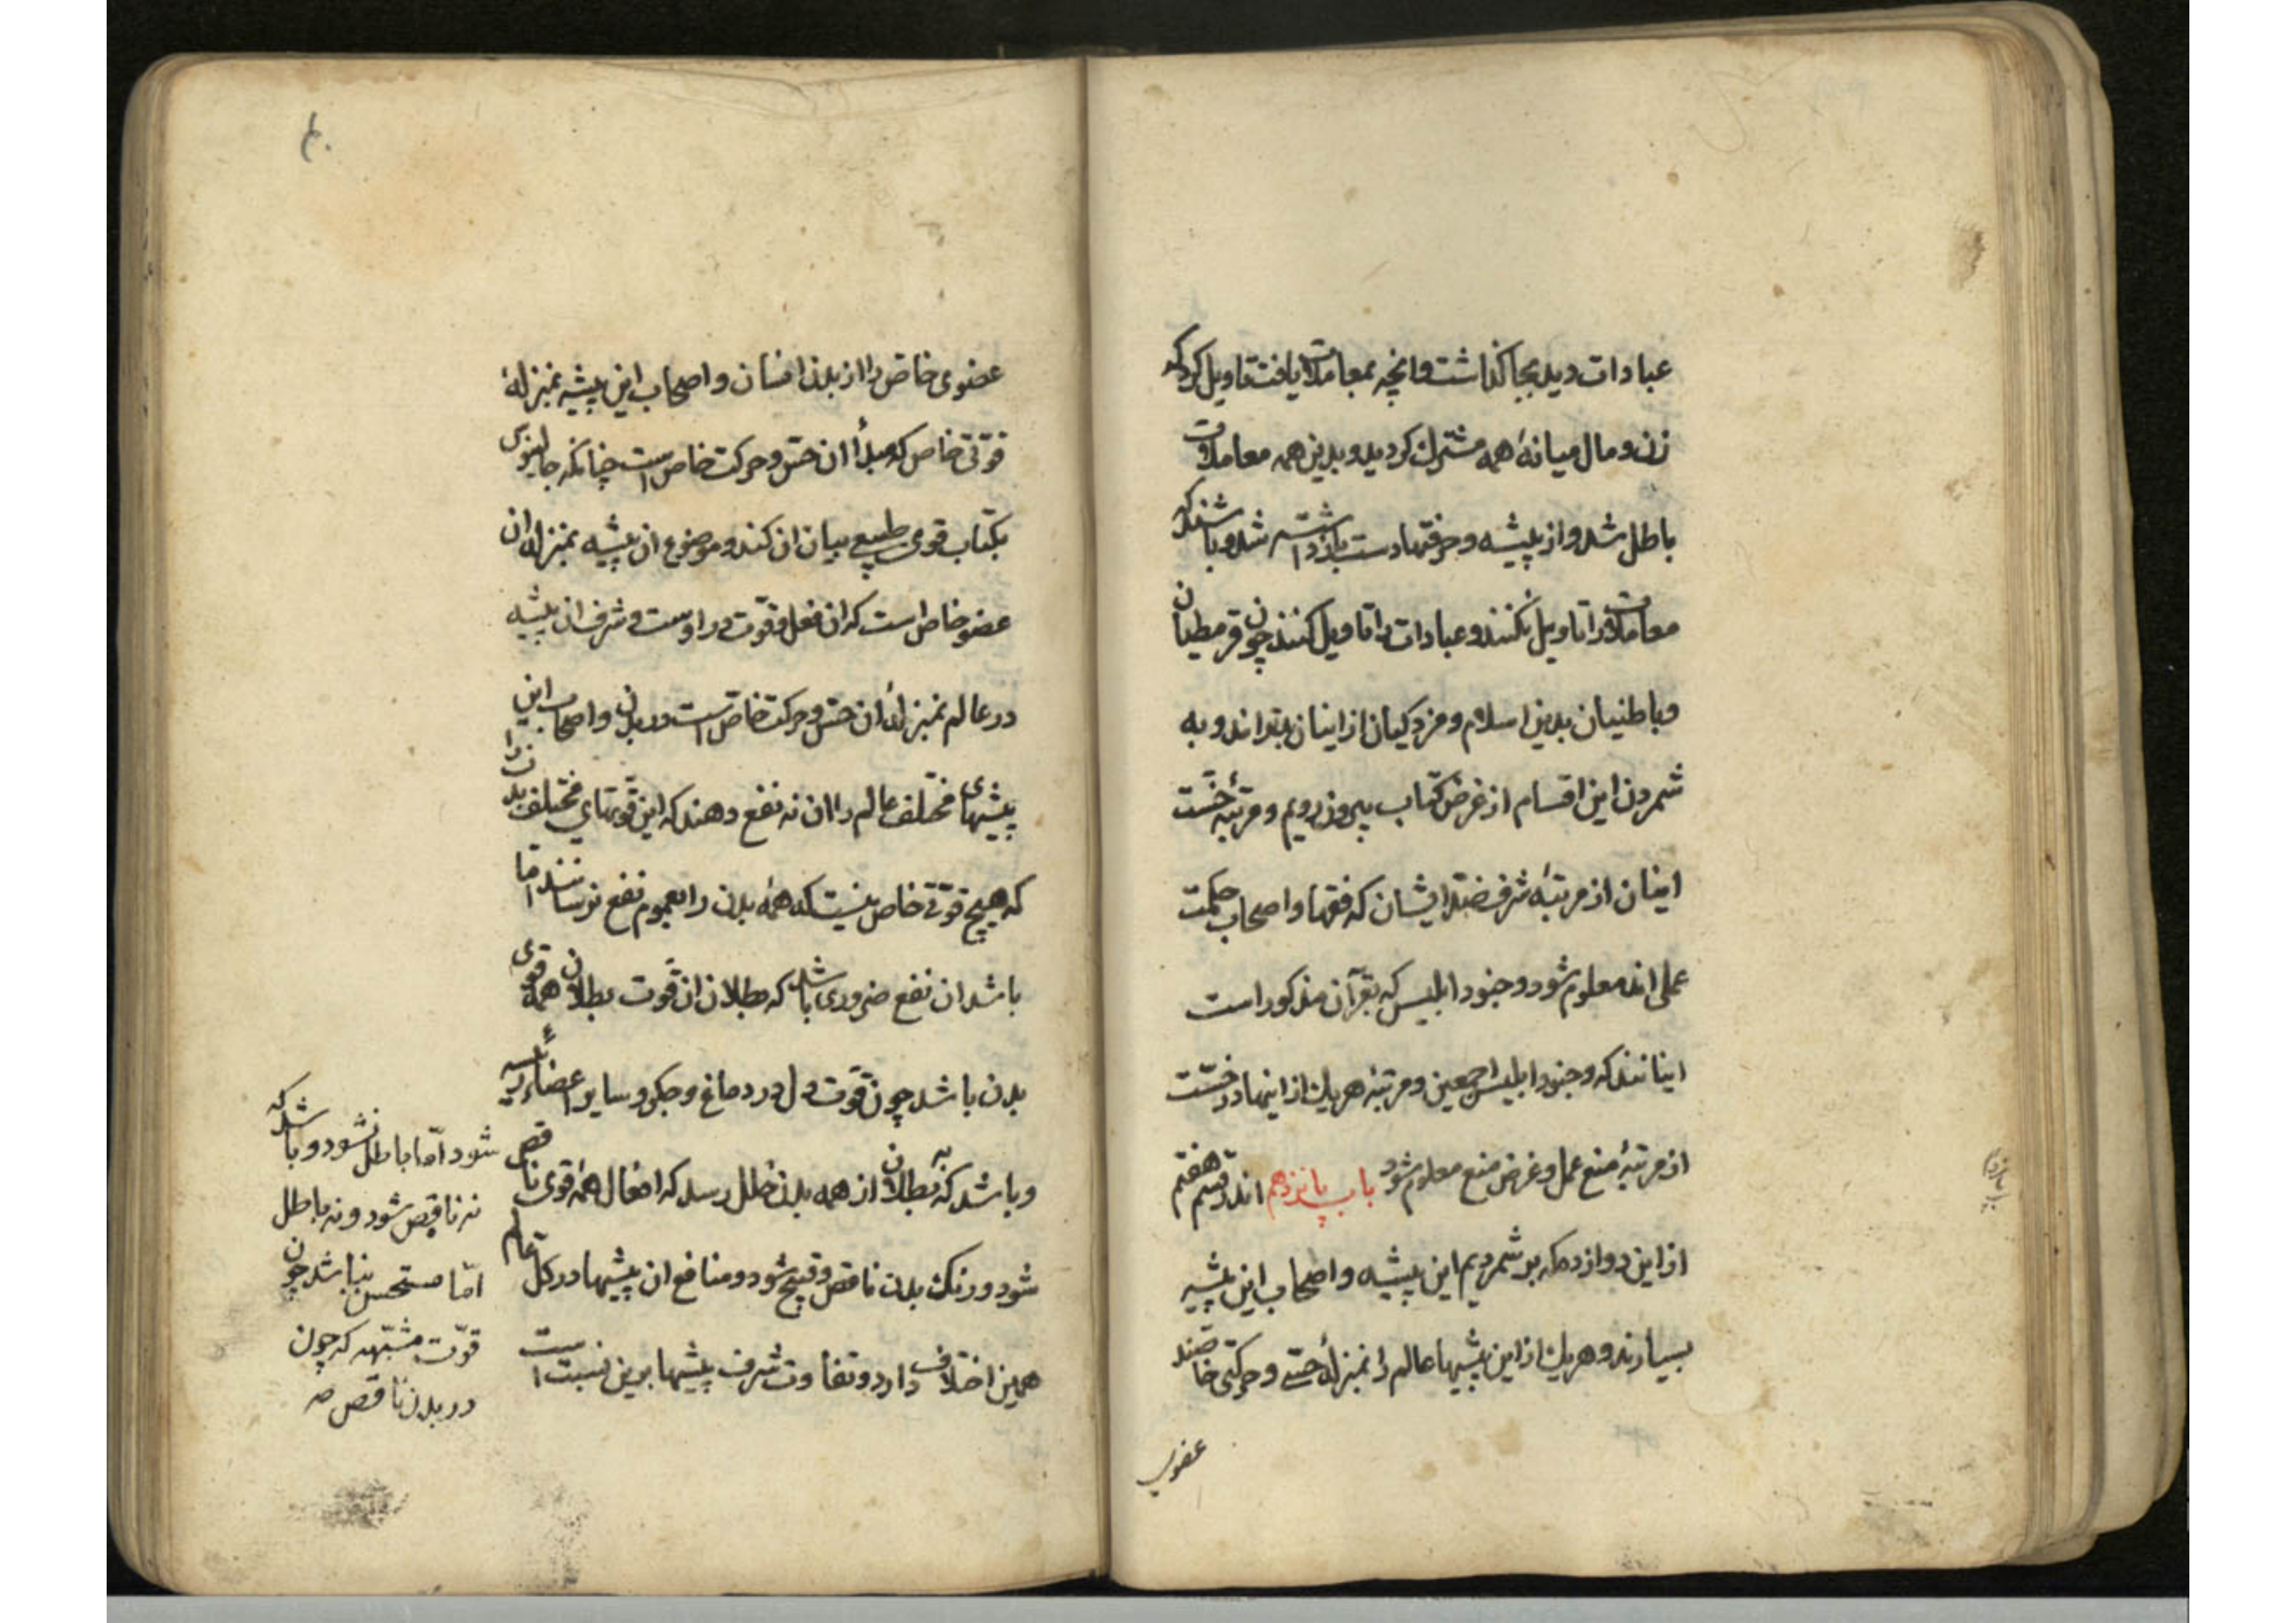 عبادات دید بجا گذاشت و انچه بمعاملات یافت تاویل کرد که
زن و مال میانهٔ همه مشترك کردید و بدین همه معاملات
باطل شد و از پیشه و حرفتها دست بازداشته شد و باشند که
معاملات را تاویل نکنند و عبادات را تاویل کنند چون قرمطیان
و باطنیان بدین اسلام و مزدکیان از اینان بتراند و به
شمردن این اقسام از غرض کتاب بیرون رویم و مرتبهٔ خسّت
اینان از مرتبهٔ شرف ضد ایشان که فقها و اصحاب حکمت
عملی اند معلوم شود و جنود ابلیس که بقرآن مذکور است
اینانند که وجنود ابلیس اجمعین و مرتبهٔ هریك از اینها در خسّت
از مرتبهٔ منع عمل و غرض منع معلوم شود باب پانزدهم اندر قسم هفتم
از این دوازده که برشمردیم این پیشه و اصحاب این پیشه
بسیارند و هریك از این پیشها عالم را بمنزلهٔ حسّی و حرکتی خاصند
عضوی
عضوی خاصّ را از بدن انسان و اصحاب این پیشه بمنزلهٔ
قوّتی خاص که مبدأ ان حسّ و حرکت خاص است چنانکه جالینوس
بکتاب قوی طبیعی بیان ان کند و موضوع ان پیشه بمنزلهٔ ان
عضو خاص است که ان فعل و قوّت در اوست و شرف ان پیشه
در عالم بمنزلهٔ ان حسّ و حرکت خاصّ است در بدن و اصحاب این
پیشهای مختلف عالم را ان نه نفع دهند که این قوّتهای مختلف بدن را
که هیچ قوّتی خاص نیست که همهٔ بدن را بعموم نفع نرساند امّا
باشد ان نفع ضروری باشد که بطلان ان قوّت بطلان همهٔ قوی
بدن باشد چون قوّت دل در دماغ و جکر و سایر اعضاء رئیسه
و باشد که به بطلان از همه بدن خلل رسد که افعال همهٔ قوی ناقص
شود و رنك بدن ناقص و قبیح شود و منافع ان پیشها در کل عالم
همین اختلاف دارد و تفاوت شرف پیشها برین نسبت است
شود امّا باطل نشود و باشد که
نه ناقص شود و نه باطل
امّا مستحسن نباشد چون
قوّت مشبّهه که چون
در بدن ناقص